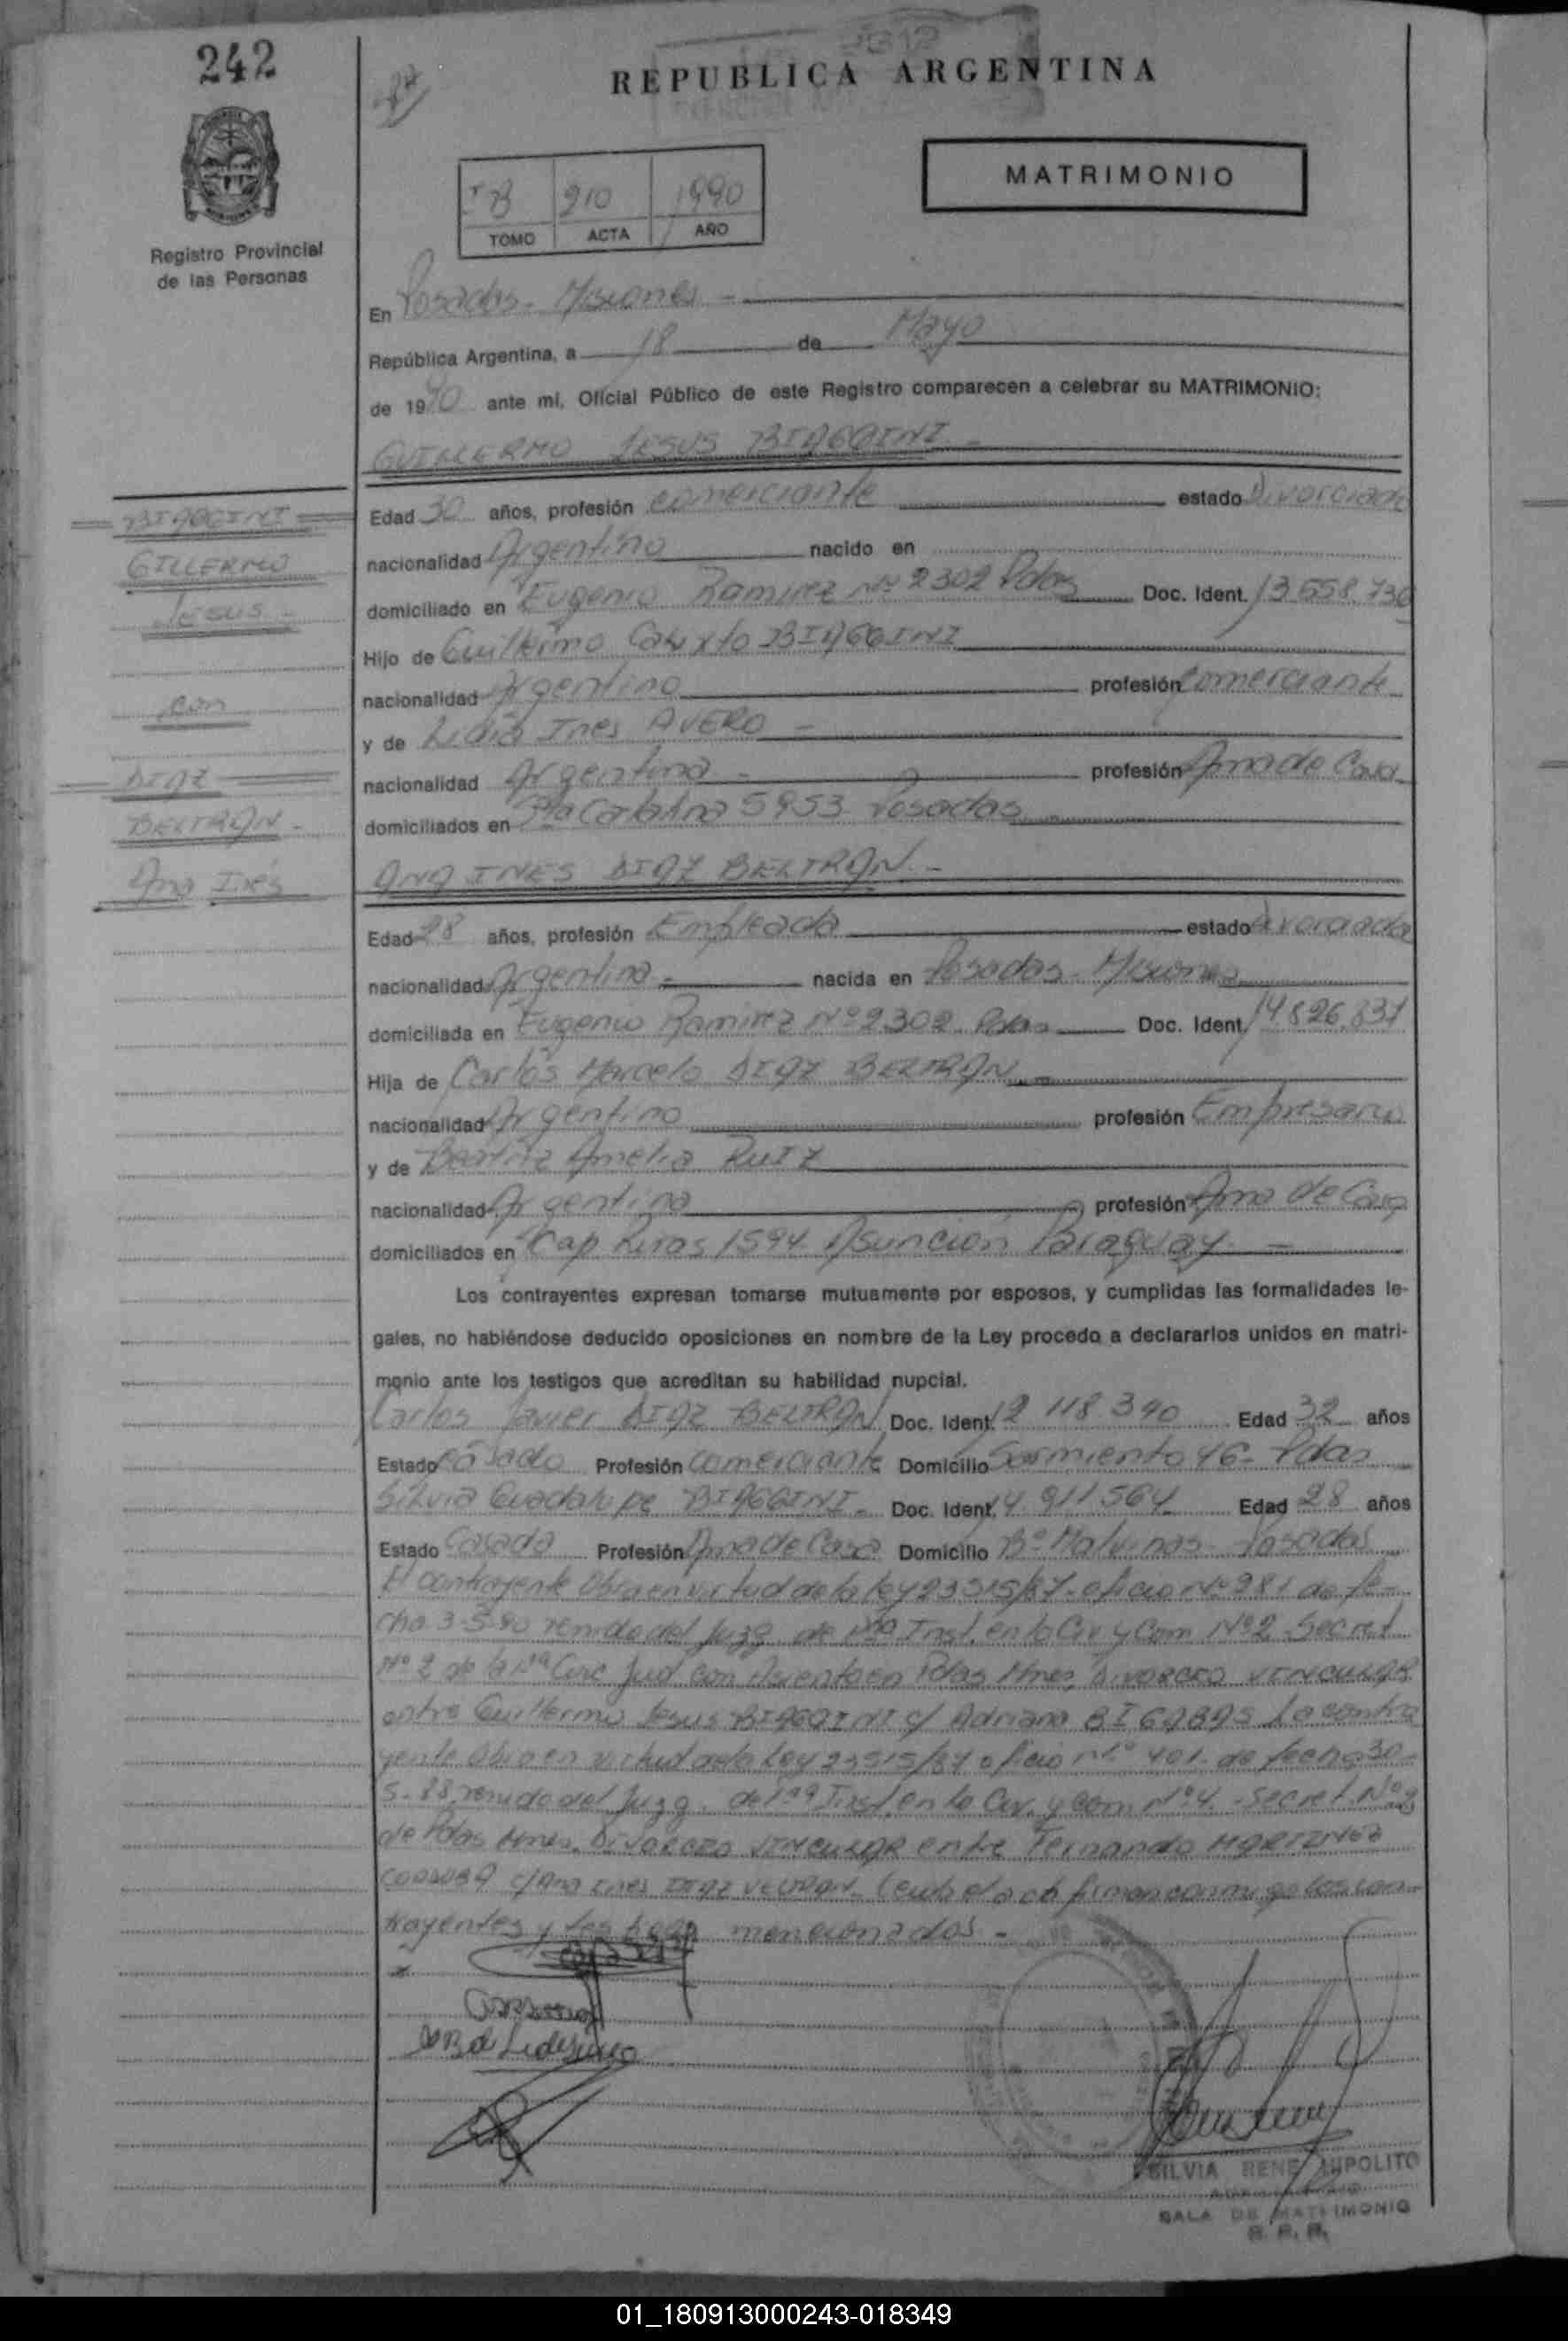 242
REPUBLICA ARGENTINA
MATRIMONIO
910 1990
TOMO ACTA AÑO
Registro Provincial
de las Personas
En Posadas - Misiones -
República Argentina, a 18 de Mayo
de 1990 ante mi, Oficial Público de este Registro comparecen a celebrar su MATRIMONIO:
GUILLERMO JESUS BIAGGINI -
BIAGGINI
GILLERMO
Jesus -
con
DIAZ
BELTRAN -
Ana Inés
Edad 30 años, profesión comerciante estado Divorciado
nacionalidad Argentino nacido en
domiciliado en Eugenio Ramirez Nº 2302 Pdas Doc. Ident. 13.558.730
Hijo de Guillermo Calixto BIAGGINI
nacionalidad Argentino profesión comerciante
y de Lidia Ines AVERO -
nacionalidad Argentina - profesión Ama de Casa
domiciliados en Sta Catalina 5953 Posadas
ANA INES DIAZ BELTRAN -
Edad 28 años, profesión Empleada estado divorciada
nacionalidad Argentina - nacida en Posadas - Misiones
domiciliada en Eugenio Ramirez Nº 2302 Pdas Doc. Ident. 14.826.831
Hija de Carlos Marcelo DIAZ BELTRAN -
nacionalidad Argentino profesión Empresario
y de Beatriz Amelia RUIZ
nacionalidad Argentina profesión Ama de Casa
domiciliados en Cap 1594 Asunción Paraguay -
Los contrayentes expresan tomarse mutuamente por esposos, y cumplidas las formalidades le-
gales, no habiéndose deducido oposiciones en nombre de la Ley procedo a declararlos unidos en matri-
monio ante los testigos que acreditan su habilidad nupcial.
Carlos Javier DIAZ BELTRAN Doc. Ident. 12 118 340 Edad 32 años
Estado casado Profesión comerciante Domicilio Sarmiento 46 - Pdas
Silvia Guadalupe BIAGGINI - Doc. Ident. 14.911.564 Edad 28 años
Estado Casada Profesión Ama de Casa Domicilio Bº Malvinas - Posadas
El contrayente Obra en virtud de la ley 23515/87 - oficio Nº 281 de fe-
cha 3-5-90 venido del Juzg. de 1ra Inst. en lo Civ y Com Nº 2 Secret
Nº 2 de la 1ª Circ Jud con Asiento en Pdas Mnes, DIVORCIO VINCULAR
entre Guillermo Jesus BIAGGINI c/ Adriana La contra
yente Obra en virtud de la Ley 23515/87 oficio nº 401 de fecha 30-
5-88 venido del Juzg. de 1ra Inst. en lo Civ. y Com Nº 4 - Secret. Nº 2
de Pdas Mnes. DIVORCIO VINCULAR entre Fernando MARTINEZ
CORDOBA c/ Ana Ines DIAZ Leida el acta firman conmigo los con-
trayentes y testigos mencionados -
SILVIA RENE HIPOLITO
SALA DE MATRIMONIO
01_180913000243-018349